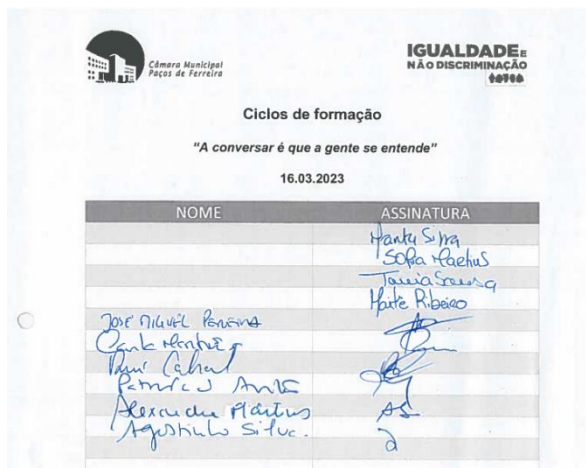 Câmara Municipal
Paços de Ferreira
IGUALDADE E
NÃO DISCRIMINAÇÃO
Ciclos de formação
"A conversar é que a gente se entende"
16.03.2023
NOME ASSINATURA
Silva
Sofia Martins
Tania Sousa
Maitê Ribeiro
JOSÉ MIGUEL PEREIRA
Cabral
Alexandra Martins AS
Agostinho Silva.